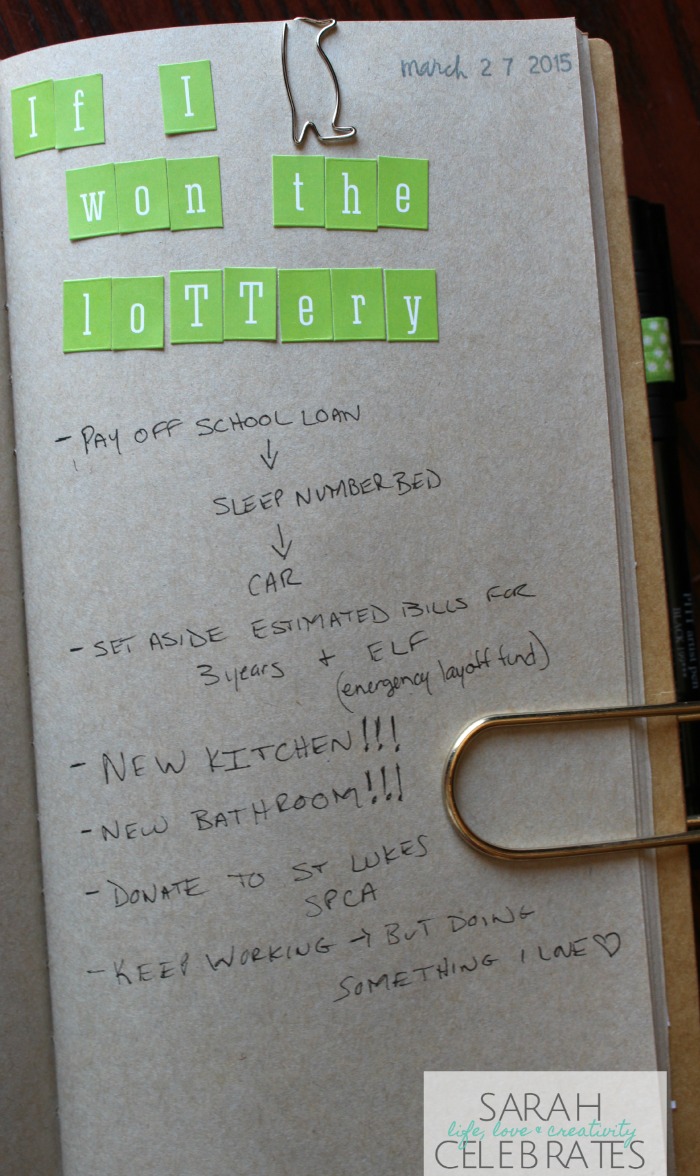 march 27 2015
If I
won the
loTTery
- PAY OFF SCHOOL LOAN
↓
SLEEP NUMBER BED
↓
CAR
- SET ASIDE ESTIMATED BILLS FOR
3 years + ELF
(energency layoff fund)
- NEW KITCHEN!!!
- NEW BATHROOM!!!
- DONATE TO ST LUKES
SPCA
- KEEP WORKING → BUT DOING
SOMETHING I LOVE♡
SARAH
life, love & creativity
CELEBRATES